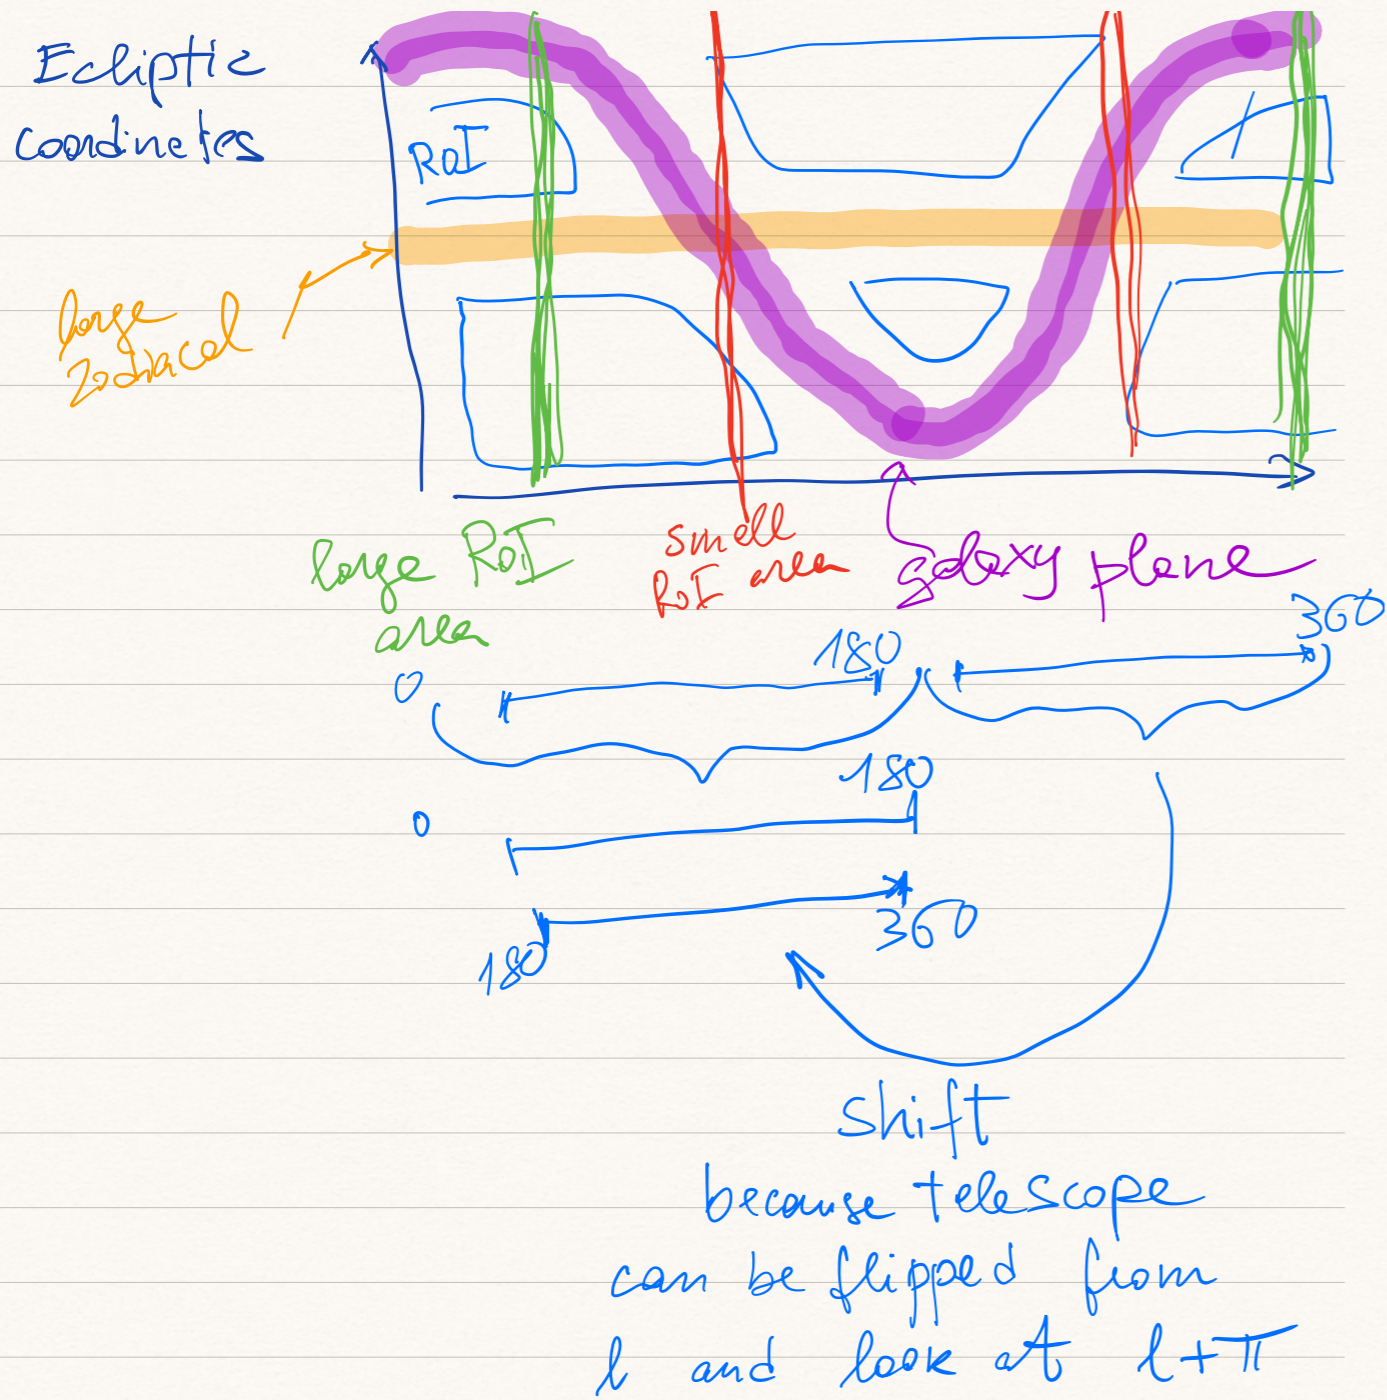 Ecliptic
coordinates
RoI
large
zodiacal
large RoI
area
small
RoI area
galaxy plane
0
180
360
0
180
180
360
shift
because telescope
can be flipped from
l and look at l+π